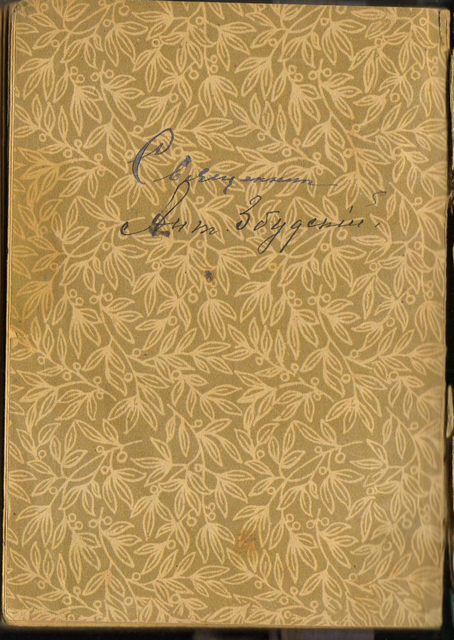 Священник
Ант. Збудскій